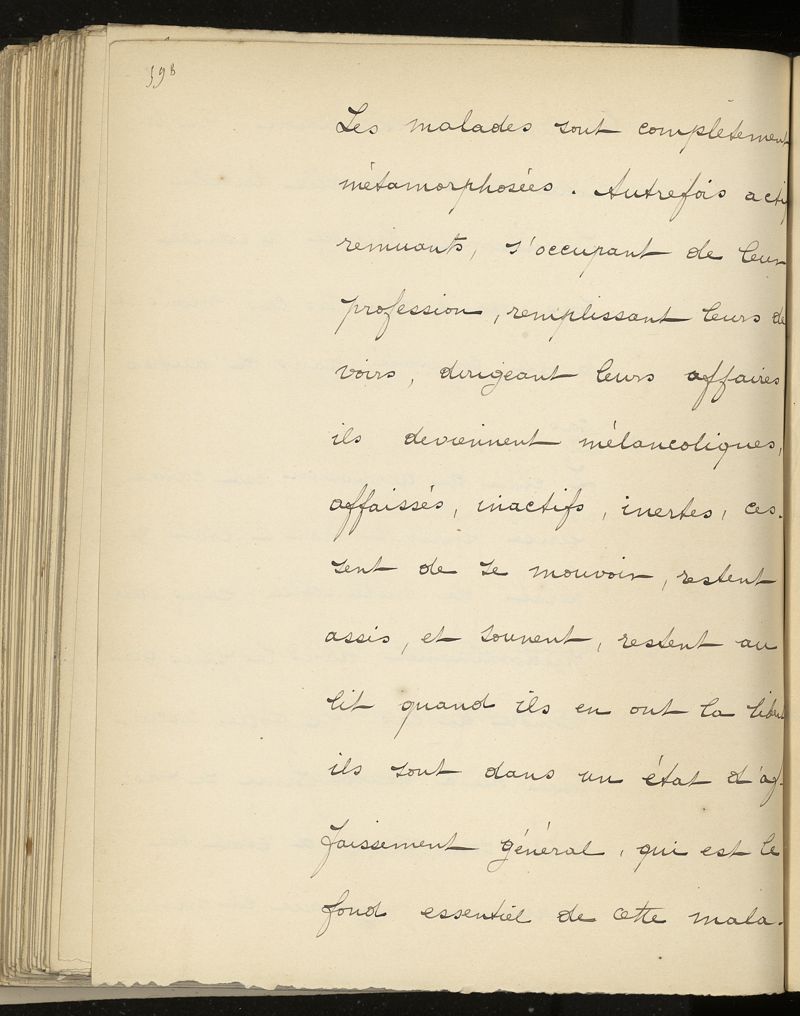 598
Les malades sont complètement
métamorphosées. Autrefois acti
remuants, s'occupant de leur
profession, remplissant leurs de
voirs, dirigeant leurs affaires
ils deviennent mélancoliques,
affaissés, inactifs, inertes, ces-
sent de se mouvoir, restent
assis, et souvent, restent au
lit quand ils en ont la
ils sont dans un état d'af-
faissement général, qui est le
fond essentiel de cette mala-